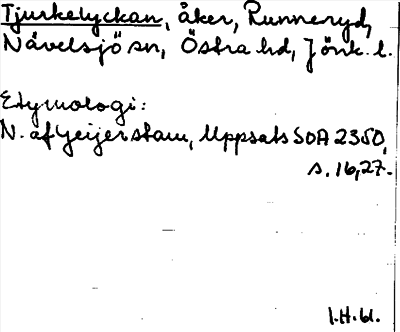 Tjurkelyckan, åker, Runneryd,
Nävelsjö sn, Östra hd, Jönk. l.
Etymologi:
N. af Geijerstam, Uppsats SOA 2350,
s. 16, 27.
I.H. 61.